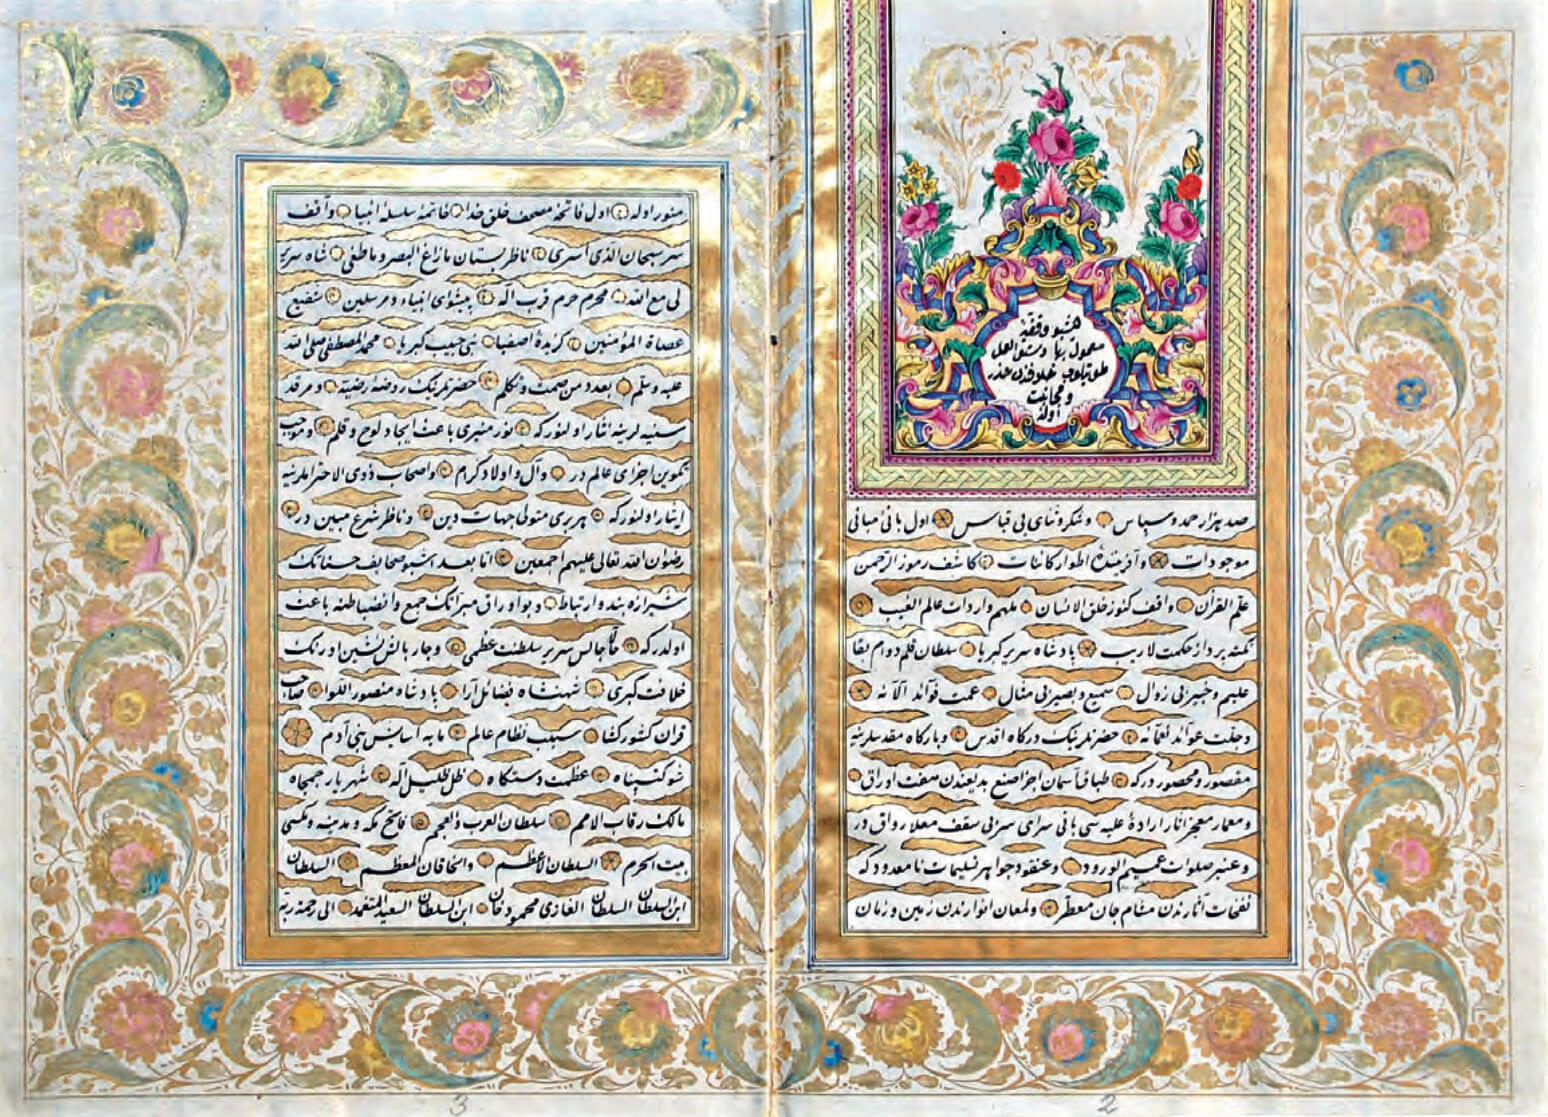 صد هزار حمد و سپاس و شكر و ثنای بی قیاس اول بانی مبانی
موجودات و آفرینندهٔ اطوار كائنات كاشف رموز الرحمن
علم القرآن واقف كنوز خلق الانسان ملهم واردات عالم الغیب
نكته پرداز حكمت لاریب پادشاه سریر كبریا سلطان قلمرو دوام بقا
علیم و خبیر بی زوال سمیع و بصیر بی مثال عمت فوائد آلائه
وجلت عوائد نعمائه حضرتلرینك درگاه اقدس و بارگاه مقدسلرینه
مقصور و محصور دركه طباق آسمان اجزا صنع بدیعندن هفت اوراق
و معمار معجز آثار ارادهٔ علیه سی بانی سرای سقف معلا رواق در
و عنبر صلوات عمیم الورود و عنقود جواهر تسلیمات نامعدود كه
نفحات آثارندن مشام جان معطر و لمعان انوارندن زمین و زمان
منور اوله اول فاتحهٔ مصحف خلق خدا خاتمهٔ سلسلهٔ انبیا واقف
سر سبحان الذی اسری ناظر بستان ما زاغ البصر وما طغی شاه سریر
لی مع الله محرم حرم قرب اله پیشوای انبیاء و مرسلین شفیع
عصاة المؤمنین گزیدهٔ اصفیا نبی حبیب كبریا محمد المصطفی صلی الله
علیه وسلم بعدد من صمت وتكلم حضرتلرینك روضهٔ رضیه و مرقد
سنیه لرینه نثار اولنور كه نور منیری باعث ایجاد لوح و قلم و موجب
تكوین اجزای عالم در و آل و اولاد كرام و اصحاب ذوی الاحترام
ایثار اولنور كه هر بری متولی جهات دین و ناظر شرع مبین در
رضوان الله تعالی علیهم اجمعین اما بعد اشبو صحایف حسناتك
شیرازه بند و ارتباط و بو اوراق مبراتك جمع و انضباطنه باعث
اولدر كه جالس سریر سلطنت عظمی و چار بالش نشین اورنك
خلافت كبری شهنشاه فضائل آرا پادشاه منصور اللوا صاحب
قران كشور گشا سبب نظام عالم مایه آسایش بنی آدم
شوكت پناه عظمت دستگاه ظل ظلیل اله شهریار جمجاه
مالك رقاب الامم سلطان العرب والعجم فاتح مكه و مدینه و
بیت الحرم السلطان الاعظم والخاقان المعظم السلطان
ابن السلطان السلطان الغازی محمود خان ابن السلطان السعید المتغمد الی رحمة ربه
3
2